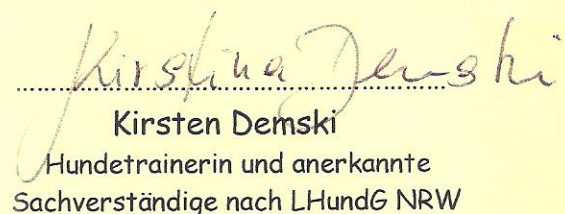 Kirstina Demski
Kirsten Demski
Hundetrainerin und anerkannte
Sachverständige nach LHundG NRW